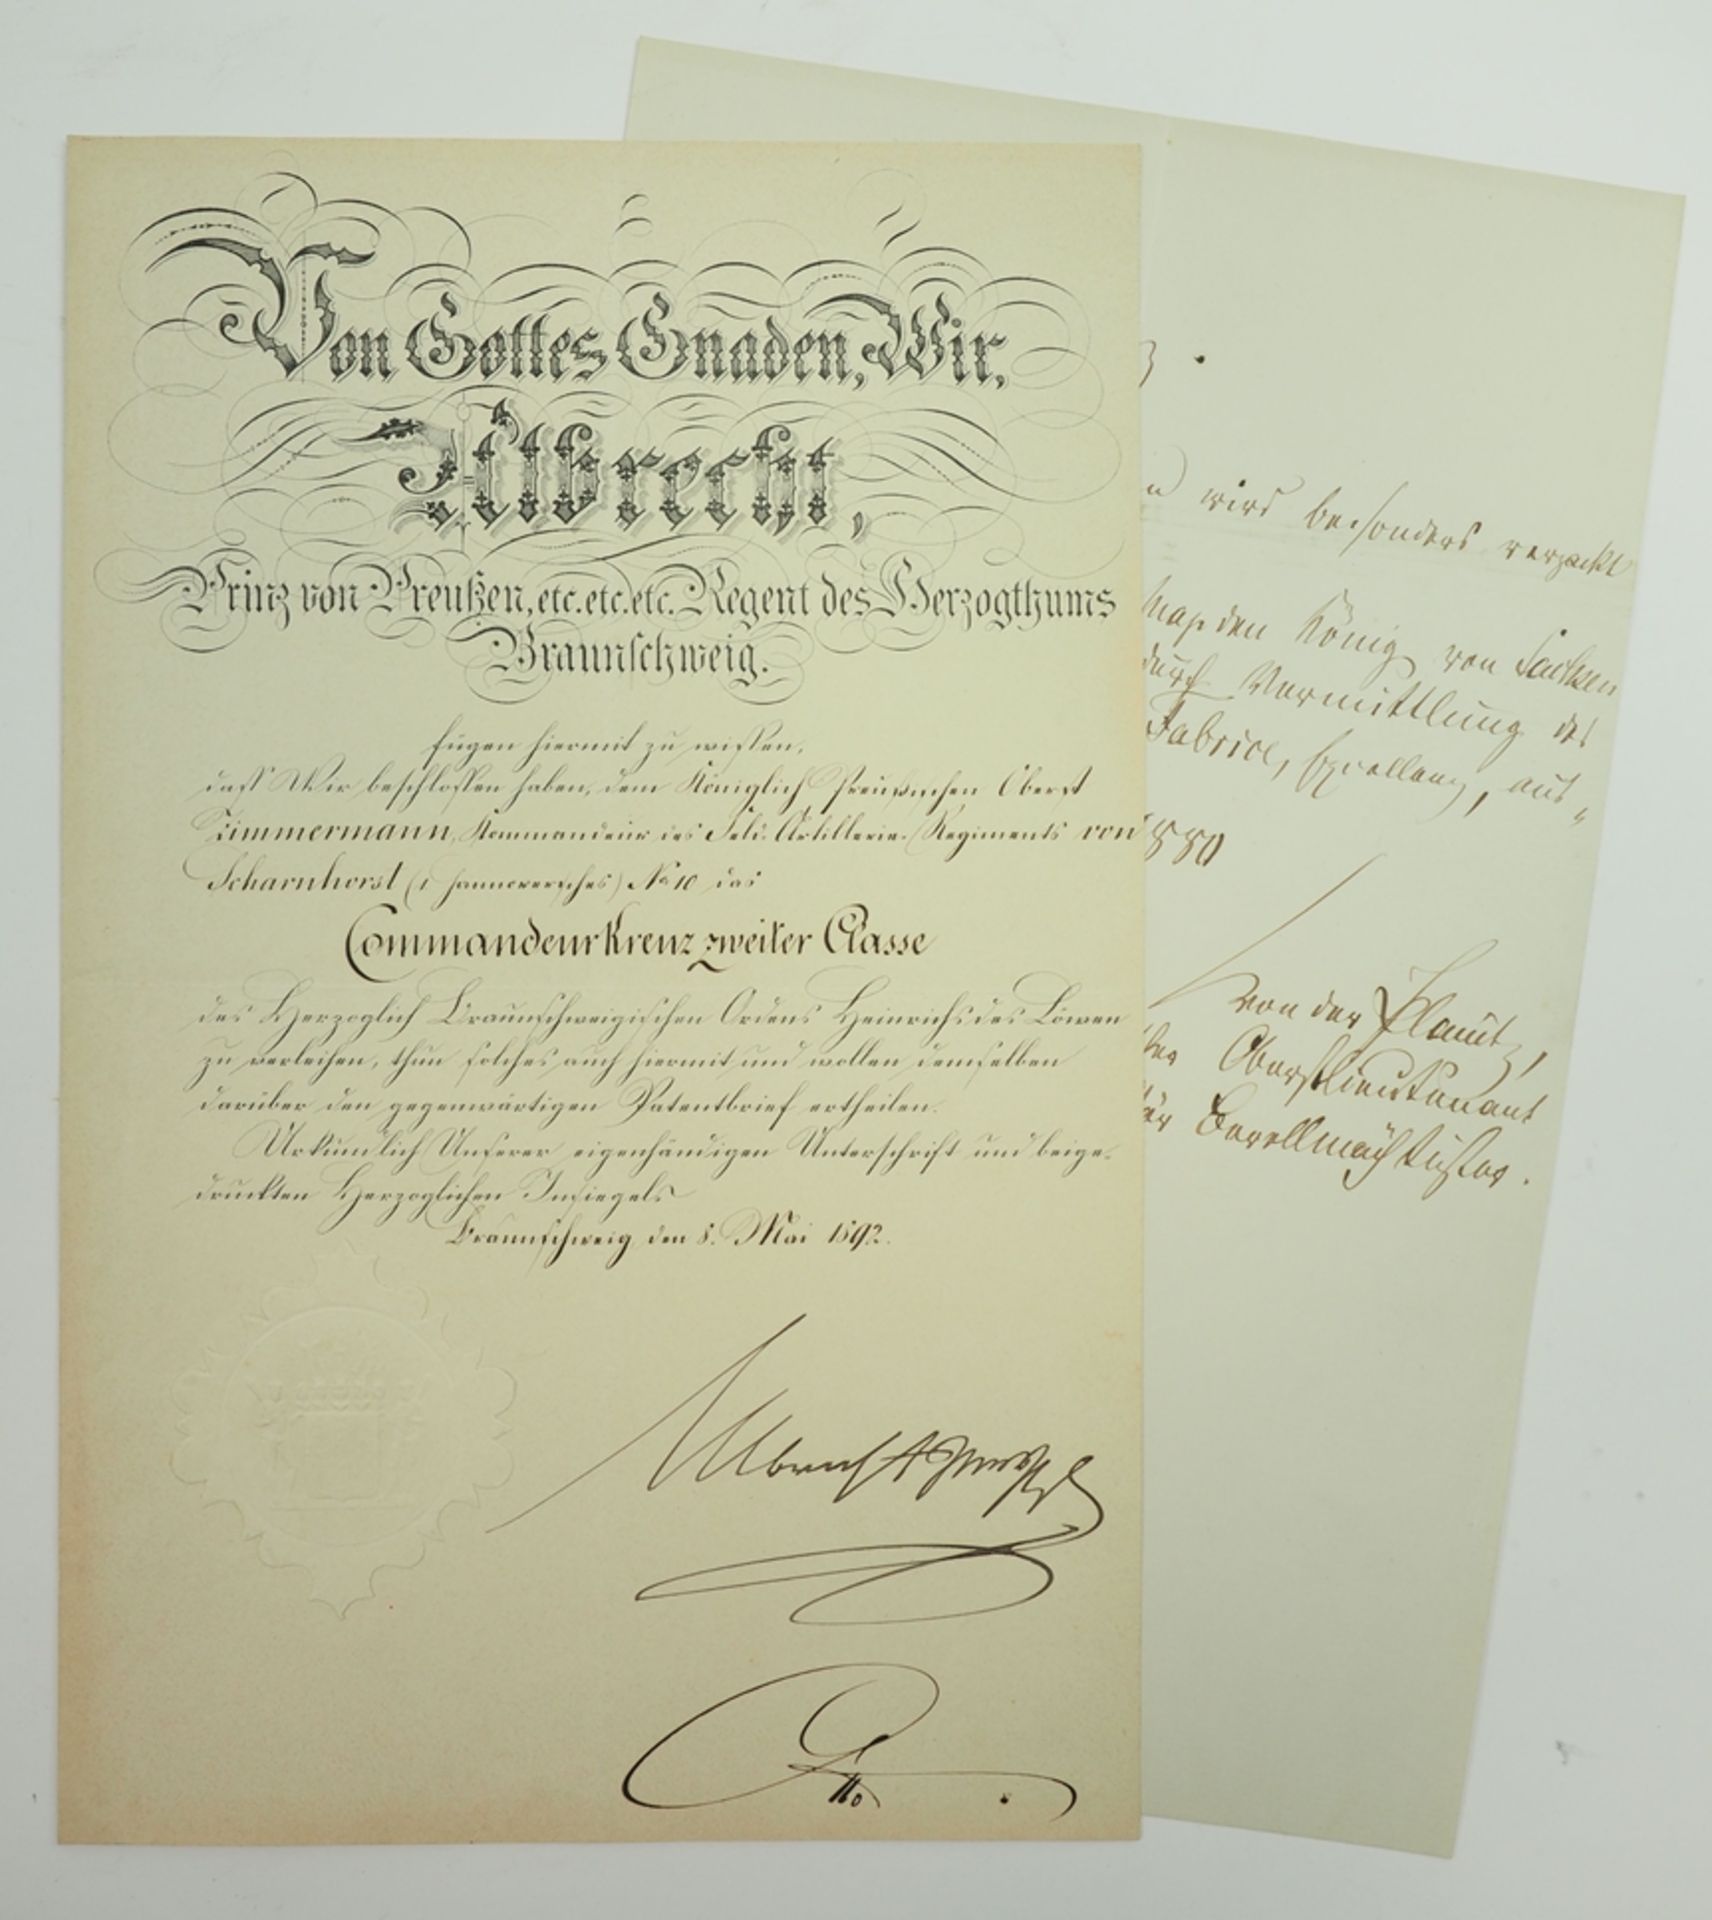 Von Gottes Gnaden, Wir,
Albrecht,
Prinz von Preußen, etc. etc. etc. Regent des Herzogthums
Braunschweig.
fügen hiermit zu wissen,
daß Wir beschlossen haben, dem Königlich Preußischen Oberst
Zimmermann, Kommandeur des Feld-Artillerie-Regiments von
Scharnhorst (1 Hannoversches) No 10 das
Commandeurkreuz zweiter Classe
des Herzoglich Braunschweigischen Ordens Heinrichs des Löwen
zu verleihen, thun solches auch hiermit und wollen demselben
darüber den gegenwärtigen Patentbrief ertheilen.
Urkundlich Unserer eigenhändigen Unterschrift und beige-
druckten Herzoglichen Insiegels
Braunschweig, den 8. Mai 1892.
Albrecht
wird besonders verpackt
den König von Sachsen
durch Vermittlung des
Fabrice, Excellenz, aus-
1880
von der Planitz,
Oberstlieutenant
Bevollmächtigter.